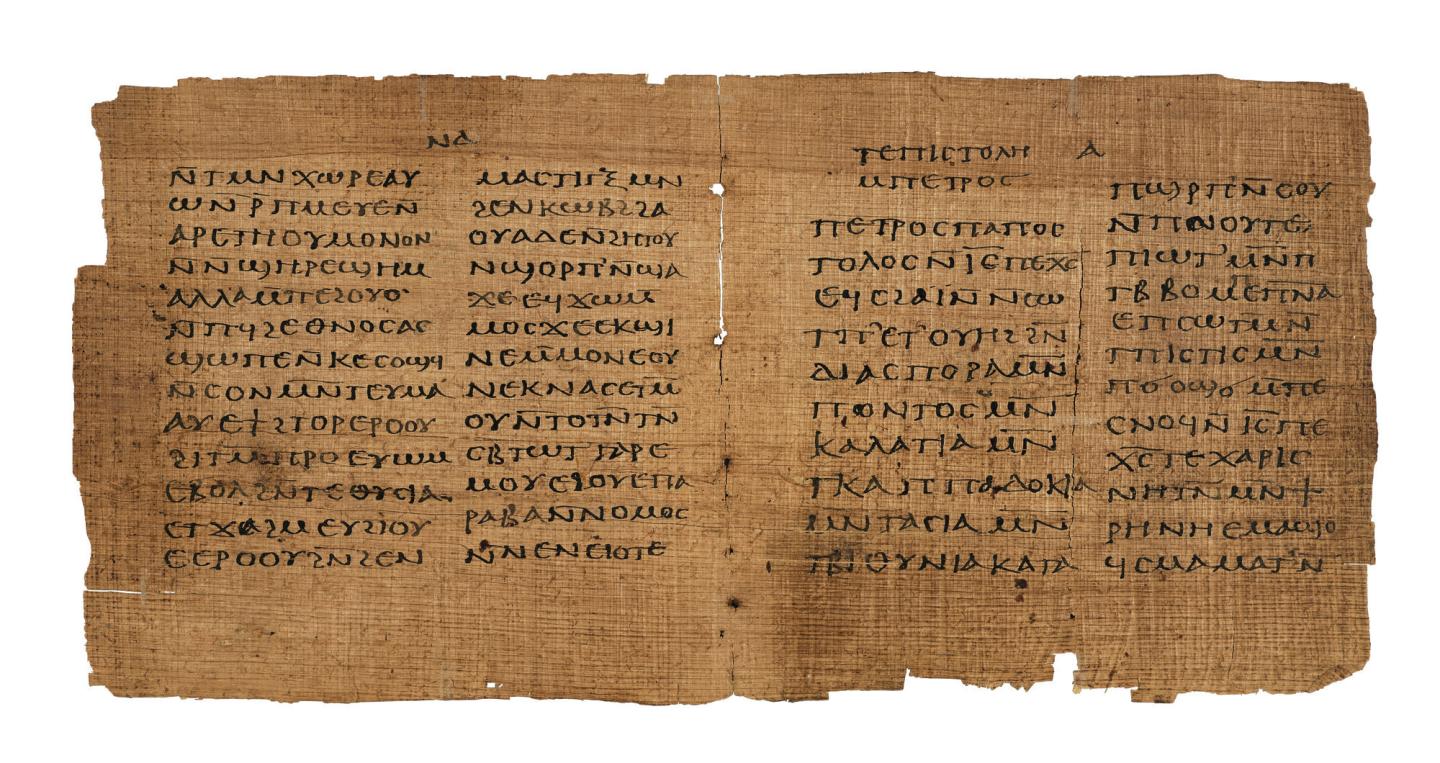 ⲛⲁ
ⲛ̄ⲧⲙⲛⲭⲱⲣⲉⲁⲩ
ⲱⲛ ⲣ̄ⲡⲙⲉⲩⲉⲛ̄
ⲁⲣⲉⲧⲏ ⲟⲩⲙⲟⲛⲟⲛ
ⲛ̄ⲛ̄ϣⲏⲣⲉϣⲏⲙ
ⲁⲗⲗⲁⲙ̄ⲡⲉϩⲟⲩⲟ
ⲛ̄ⲡϥϩⲉⲑⲛⲟⲥⲁⲥ
ϣⲱⲡⲉⲛ̄ⲕⲉⲥⲟⲡϥ
ⲛ̄ⲥⲟⲛⲙⲛ̄ⲧⲉⲩⲙⲁ
ⲁⲩⲉϯϩⲧⲟⲣⲉⲣⲟⲟⲩ
ϩⲓⲧⲙ̄ⲡⲣⲟⲉⲩⲱⲙ
ⲉⲃⲟⲗϩⲛ̄ⲧⲉⲑⲩⲥⲓⲁ
ⲉⲧϫⲁϩⲙ ⲉⲩϩⲓⲟⲩ
ⲉⲉⲣⲟⲟⲩϩⲛ̄ϩⲉⲛ
ⲙⲁⲥⲧⲓⲅⲝ ⲙⲛ
ϩⲉⲛⲕⲱⲃϩϩⲁ
ⲟⲩⲁⲇⲉⲛϩⲏⲧⲟⲩ
ⲛϣⲟⲣⲡ ⲛ̄ϣⲁ
ϫⲉ ⲉϥϫⲱⲙ̄
ⲙⲟⲥϫⲉⲉⲕϣⲓ
ⲛⲉⲙ̄ⲙⲟⲛⲉⲟⲩ
ⲛⲉⲕⲛⲁⲥⲉⲧⲙ̄
ⲟⲩⲛ̄ⲧⲟⲧⲛ̄ⲧⲛ̄
ⲥⲃ̄ⲧⲱⲧ ⲅⲁⲣⲉ
ⲙⲟⲩ ⲉϩⲟⲩⲉⲡⲁ
ⲣⲁⲃⲁⲛⲛⲟⲙⲟⲥ
ⲛ̄ⲛⲉⲛⲉⲓⲟⲧⲉ
ⲧⲉⲡⲓⲥⲧⲟⲗⲏ ⲁ
ⲙⲡⲉⲧⲣⲟⲥ
ⲡⲉⲧⲣⲟⲥⲡⲁⲡⲟⲥ
ⲧⲟⲗⲟⲥⲛ̄ⲓ̅ⲥ̅ⲡⲉⲭⲥ̅
ⲉϥⲥϩⲁⲓ̈ⲛ̄ⲛⲥⲱ
ⲧⲡ ⲉⲧ ⲟⲩⲏϩϩⲛ̄
ⲇⲓⲁⲥⲡⲟⲣⲁⲙⲛ̄
ⲡⲟⲛⲧⲟⲥ ⲙⲛ̄
ⲕⲁⲗⲁⲧⲓⲁ ⲙⲛ̄
ⲧⲕⲁⲡⲡⲁⲇⲟⲕⲓⲁ
ⲙⲛⲧⲁⲥⲓⲁ ⲙⲛ̄
ⲧⲃⲓⲑⲩⲛⲓⲁⲕⲁⲧⲁ
ⲡϣⲣⲡ ⲛ̄ⲥⲟⲩ
ⲛ̄ⲡⲛⲟⲩⲧⲉ
ⲡⲓⲱⲧ ⲙⲛ̄ⲡ
ⲧⲃ̄ⲃⲟ ⲙ̄ⲉⲡⲛ̅ⲁ̅
ⲉⲡⲥⲱⲧⲙ ⲛ̄
ⲧⲡⲓⲥⲧⲓⲥ ⲙⲛ̄
ⲡϭⲟϣϭ ⲙ̄ⲡⲉ
ⲥⲛⲟϥⲛ̄ ⲓ̅ⲥ̅ ⲡⲉ
ⲭⲥ̅ ⲧⲉⲭⲁⲣⲓⲥ
ⲛⲏⲧⲛ̄ ⲙⲛ̄ ϯ
ⲣⲏⲛⲏ ⲉⲙⲁϣⲟ
ϥⲥⲙⲁⲙⲁⲁⲧ ⲛ